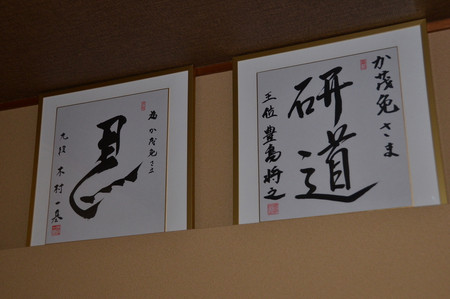 か茂免さま
研道
王位 豊島将之
為 か茂免さま
九段 木村一基